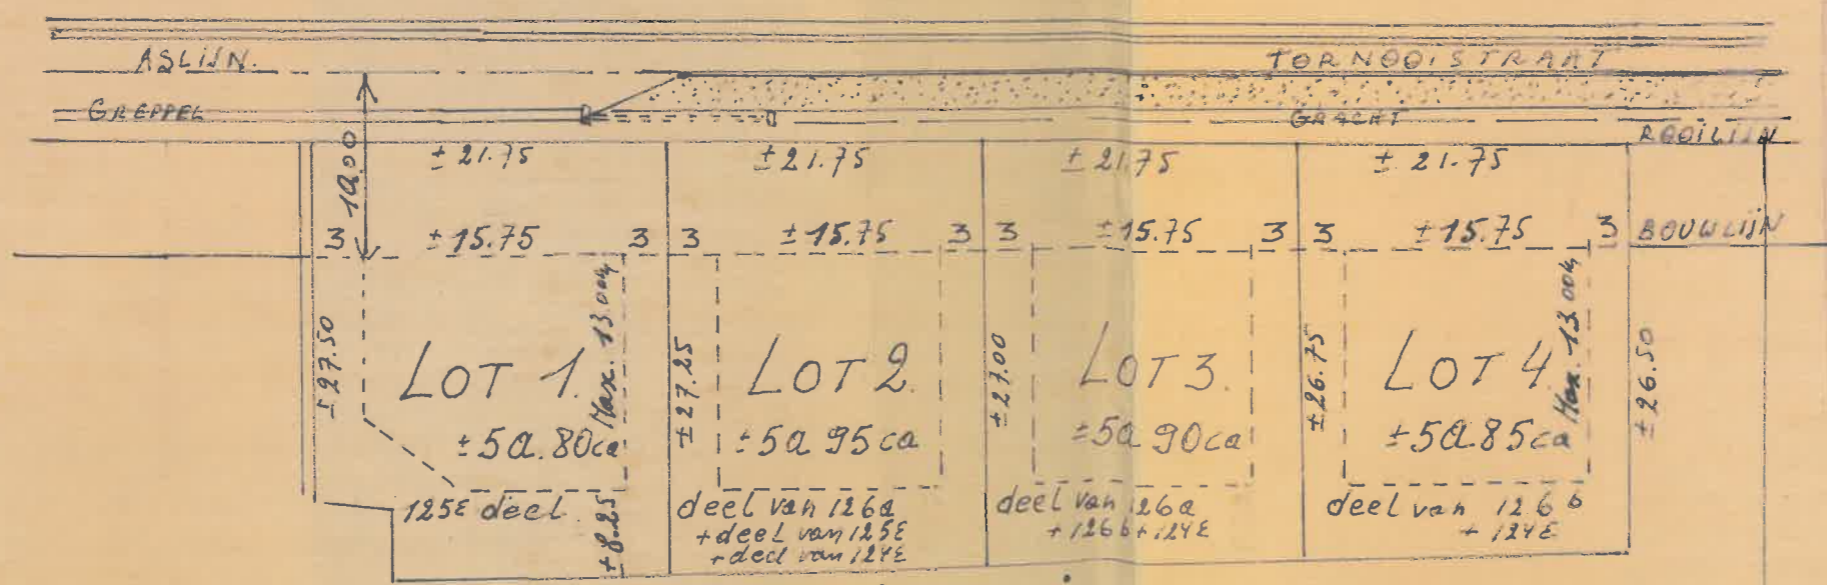 ASLIJN.
TORNOOISTRAAT
GREPPEL
GRACHT
ROOILIJN
10.00
± 21.75
± 21.75
± 21.75
± 21.75
3
± 15.75
3
3
± 15.75
3
3
± 15.75
3
3
± 15.75
3
BOUWLIJN
± 27.50
LOT 1.
± 5a. 80ca
Max. 13.00m
125E deel.
± 8.25
± 27.25
LOT 2.
± 5a 95ca
deel van 126a
+ deel van 125E
+ deel van 124E
± 27.00
LOT 3.
± 5a 90ca
deel van 126a
+ 126b + 124E
± 26.75
LOT 4.
± 5a 85ca
Max. 13.00m
deel van 126b
+ 124E
± 26.50